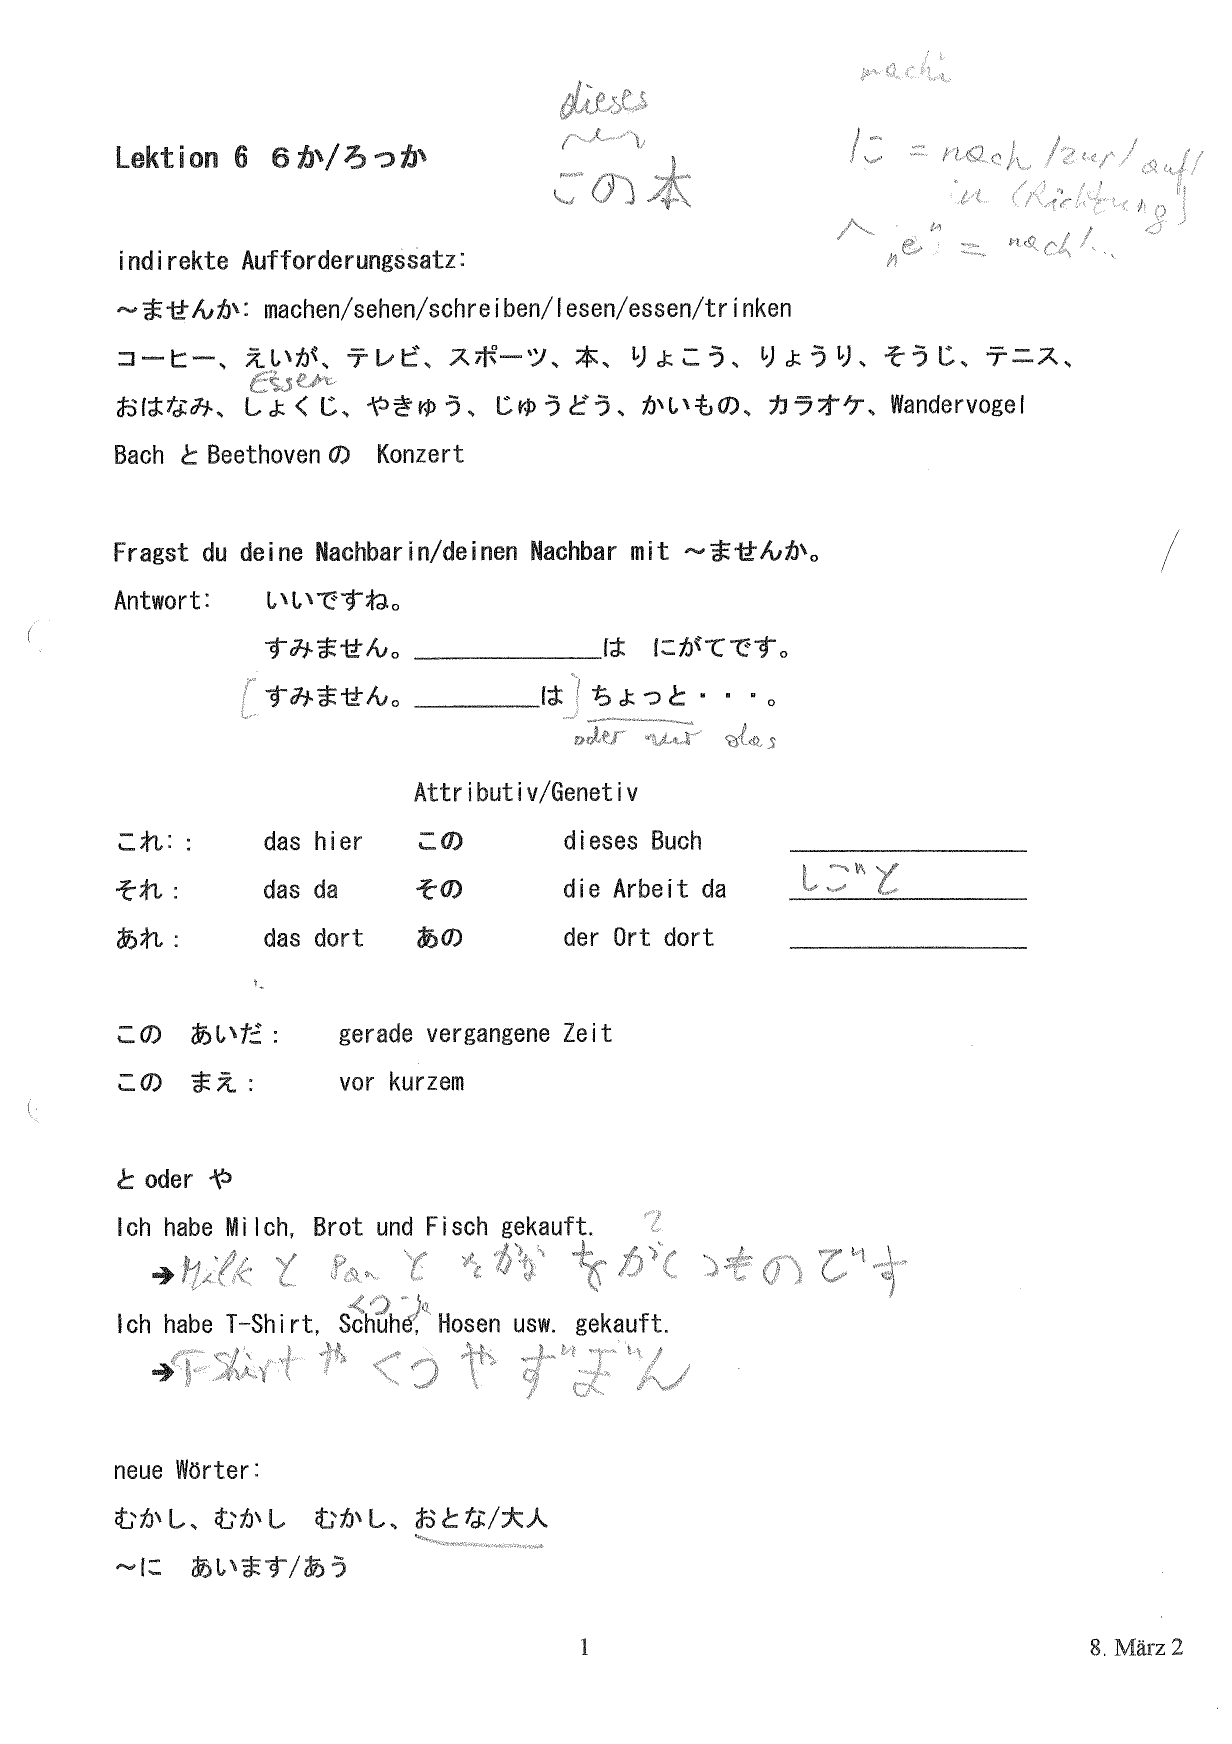 machi
dieses
Lektion 6 6か/ろっか
この本
に = nach /zur/ auf/
in (Richtung)
へ „e" = nach/...
indirekte Aufforderungssatz:
～ませんか: machen/sehen/schreiben/lesen/essen/trinken
コーヒー、えいが、テレビ、スポーツ、本、りょこう、りょうり、そうじ、テニス、
Essen
おはなみ、しょくじ、やきゅう、じゅうどう、かいもの、カラオケ、Wandervogel
Bach と Beethoven の Konzert
Fragst du deine Nachbarin/deinen Nachbar mit ～ませんか。
Antwort: いいですね。
すみません。____________は にがてです。
[すみません。________は] ちょっと・・・。
oder nur das
Attributiv/Genetiv
これ: : das hier この dieses Buch ____________
それ : das da その die Arbeit da しごと
あれ : das dort あの der Ort dort ____________
この あいだ : gerade vergangene Zeit
この まえ : vor kurzem
と oder や
Ich habe Milch, Brot und Fisch gekauft. ?
➔ Milk と Pan と を がくつものです
くつ
Ich habe T-Shirt, Schuhe, Hosen usw. gekauft.
➔ T-Shirt や くつ や ずぼん
neue Wörter:
むかし、むかし むかし、おとな/大人
～に あいます/あう
1
8. März 2